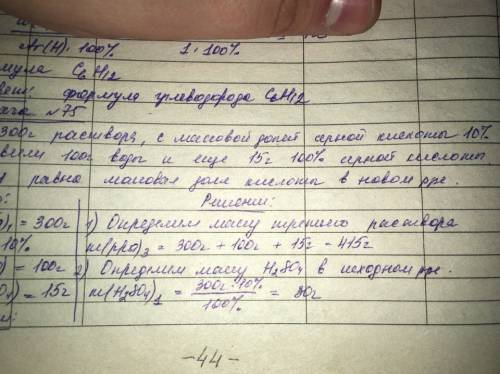 Ar(H)·100% 1·100%
мула C6H12
формула углеводорода C6H12
ача №75
300г раствора, с массовой долей серной кислоты 10%
вили 100г воды и еще 15г 100% серной кислоты
равна массовая доля кислоты в новом р-ре.
Решение:
)1 = 300г 1) Определяем массу третьего раствора
10% m(р-ра)3 = 300г + 100г + 15г = 415г
) = 100г 2) Определяем массу H2SO4 в исходном р-ре.
O4) = 15г m(H2SO4)1 = 300г·10% / 100% = 30г
-44-